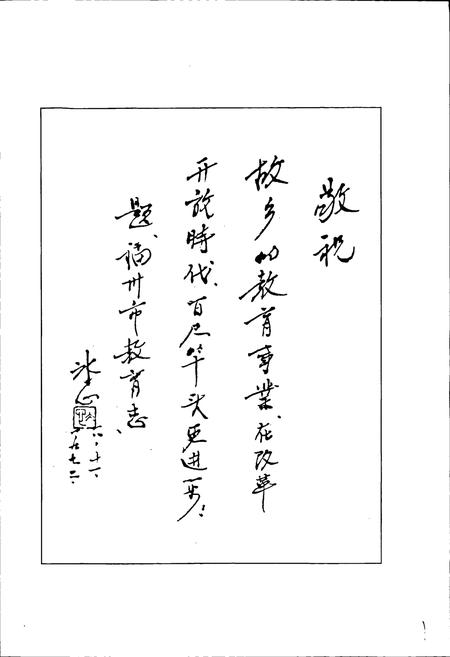 敬祝
故乡的教育事業、在改革
开放時代、百尺竿头更进一步！
题、福州市教育志、
冰心